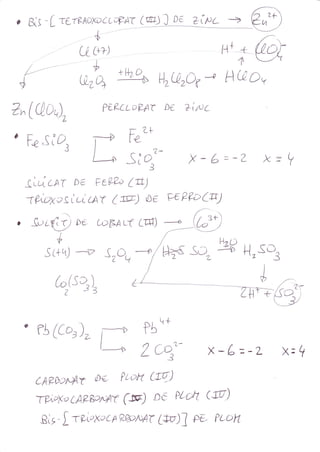 • BIS-[TETRAOXOCLORAT (VII)] DE ZINC → Zn²⁺
Cl(+7) H⁺ + ClO₄⁻
Cl₂O₇ +H₂O → H₂Cl₂O₈ → HClO₄
Zn(ClO₄)₂ PERCLORAT DE ZINC
• FeSiO₃ → Fe²⁺
→ SiO₃²⁻ x-6=-2 x=4
SILICAT DE FERRO (II)
TRIOXOSILICAT (IV) DE FERRO (II)
• SULFIT DE COBALT (III) → Co³⁺
S(+4) → S₂O₄ → SO₂ H₂O → H₂SO₃
Co₂(SO₃)₃
2H⁺ + SO₃²⁻
• Pb(CO₃)₂ → Pb⁴⁺
→ 2 CO₃²⁻ x-6=-2 x=4
CARBONAT DE PLOM (IV)
TRIOXOCARBONAT (IV) DE PLOM (IV)
BIS-[TRIOXOCARBONAT (IV)] DE PLOM